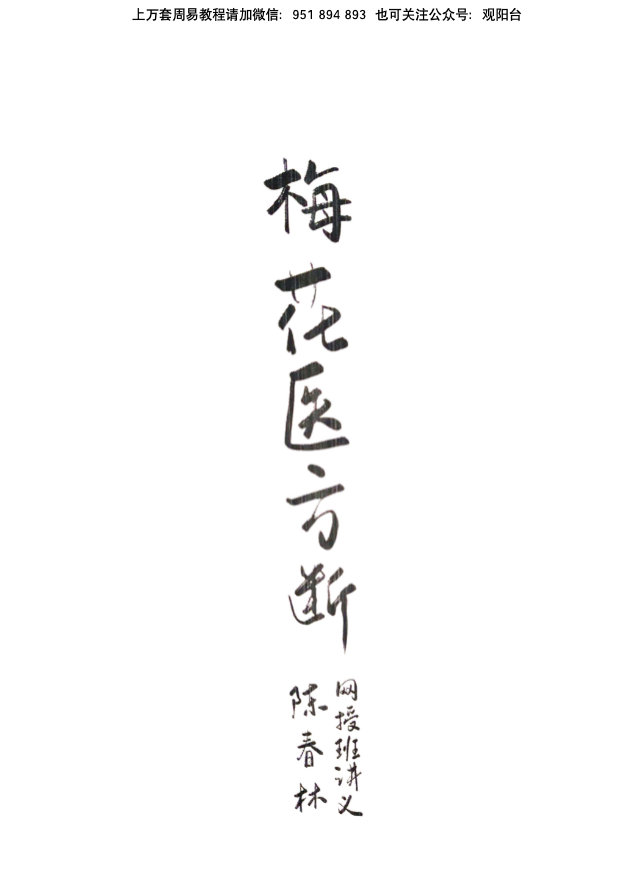 上万套周易教程请加微信: 951 894 893 也可关注公众号: 观阳台
梅花医方断
网授班讲义
陈春林